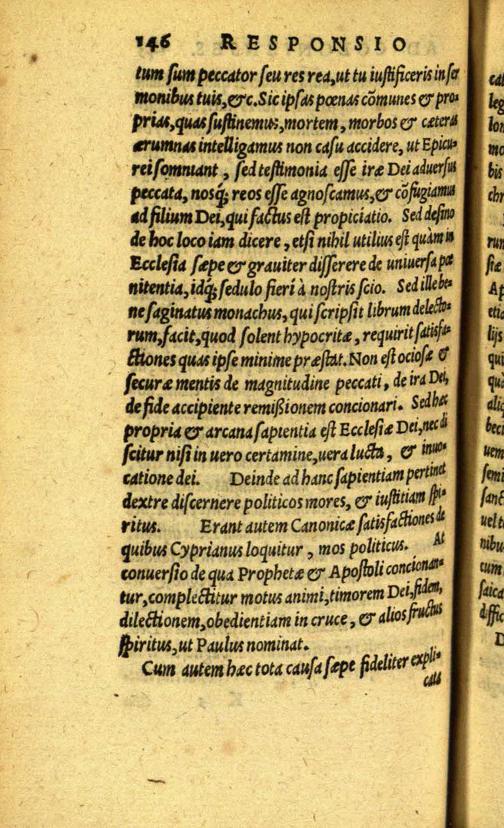 146 RESPONSIO
tum ſum peccator ſeu res rea, ut tu iuſtificeris in ſer
monibus tuis, &c. Sic ipſas pœnas cõmunes & pro-
prias, quas ſuſtinemus, mortem, morbos & cætera
ærumnas intelligamus non caſu accidere, ut Epicu-
rei ſomniant, ſed teſtimonia eſſe iræ Dei aduerſus
peccata, nosq́; reos eſſe agnoſcamus, & cõfugiamus
ad filium Dei, qui factus eſt propiciatio. Sed deſino
de hoc loco iam dicere, etſi nihil utilius eſt quàm in
Eccleſia ſæpe & grauiter diſſerere de uniuerſa pœ
nitentia, idq́; ſedulo fieri à noſtris ſcio. Sed ille be-
ne ſaginatus monachus, qui ſcripſit librum delecto-
rum, facit, quod ſolent hypocritæ, requirit ſatisfa-
ctiones quas ipſe minime præſtat. Non eſt ocioſæ &
ſecuræ mentis de magnitudine peccati, de ira Dei,
de fide accipiente remißionem concionari. Sed hæc
propria & arcana ſapientia eſt Eccleſiæ Dei, nec di
ſcitur niſi in uero certamine, uera lucta, & inuo-
catione dei. Deinde ad hanc ſapientiam pertinet
dextre diſcernere politicos mores, & iuſtitiam ſpi-
ritus. Erant autem Canonicæ ſatisfactiones de
quibus Cyprianus loquitur, mos politicus. At
conuerſio de qua Prophetæ & Apoſtoli concionan-
tur, complectitur motus animi, timorem Dei, fidem,
dilectionem, obedientiam in cruce, & alios fructus
ſpiritus, ut Paulus nominat.
Cum autem hæc tota cauſa ſæpe fideliter expli-
cata